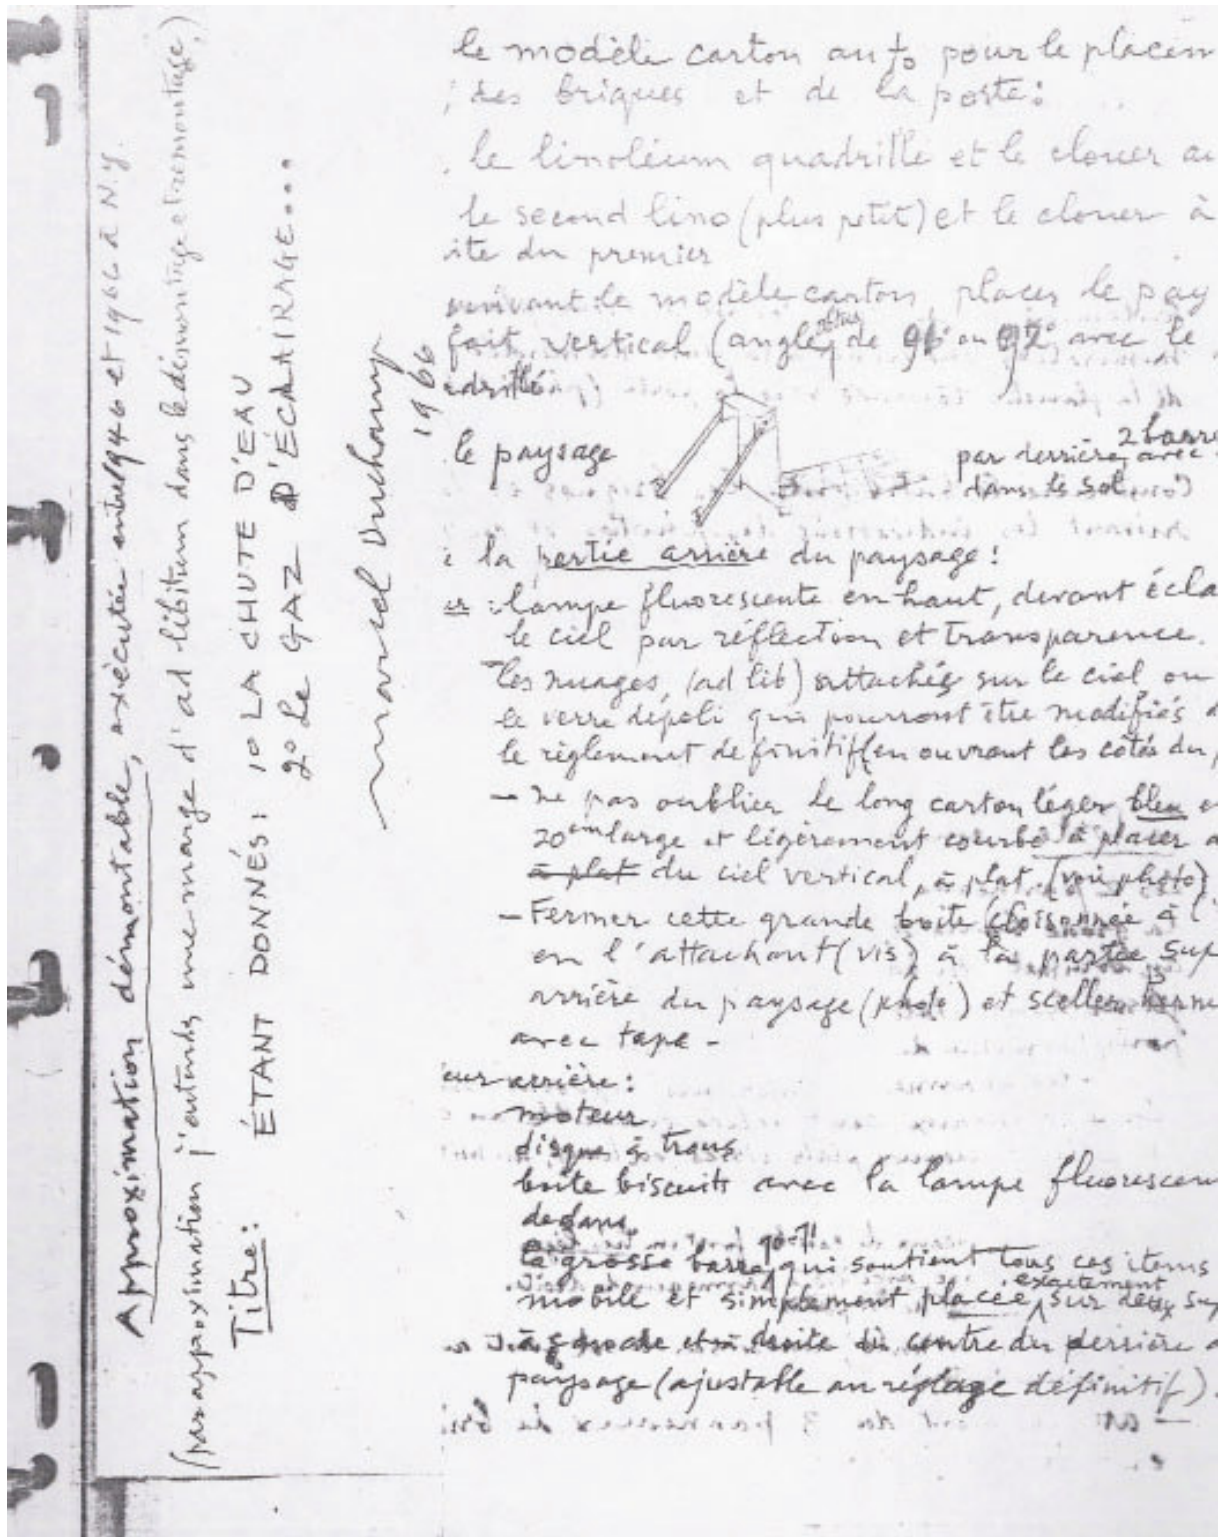 Approximation démontable, exécutée entre 1946 et 1966 à N.Y.
(par approximation j'entends une marge d'ad libitum dans le démontage et remontage)
Titre: ÉTANT DONNÉS: 1º LA CHUTE D'EAU
2º Le GAZ D'ÉCLAIRAGE...
Marcel Duchamp
1966
le modèle carton pour le placem
des briques et de la porte:
le linoléum quadrillé et le clouer au
le second lino (plus petit) et le clouer à
ite du premier
suivant le modèle carton, placer le pay
fait vertical (angle de 91° ou 92° avec le
adrillé
le paysage
par derrière, avec 2 barre
dans le sol
la partie arrière du paysage:
lampe fluorescente en haut, devant écla
le ciel par réflection et transparence.
- les nuages, (ad lib) attachés sur le ciel ou
le verre dépoli qui pourront être modifiés
le règlement definitif (en ouvrant les côtés du
- Ne pas oublier le long carton léger, bleu
20 cm large et légèrement courbé à placer
à plat du ciel vertical, à plat, (voir photo)
- Fermer cette grande boite (cloisonnée à l'
en l'attachant (vis) à la partie sup
arrière du paysage (photo) et sceller herm
avec tape -
eur arrière:
moteur
disque à trous
boite biscuits avec la lampe fluorescen
dedans
la grosse barre, qui soutient tous ces items
mobile et simplement placée exactement sur deux sup
à gauche et à droite du centre du derrière
paysage (ajustable au réglage définitif).